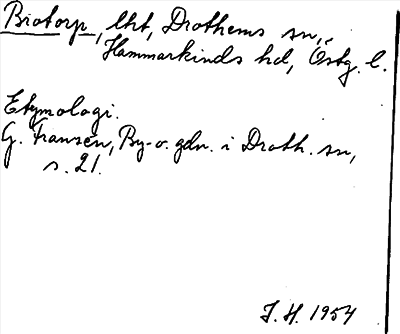 Biotorp, lht, Drothems sn,
Hammarkinds hd, Östg. l.
Etymologi.
G. Franzén, By- o. gdn. i Droth. sn,
s. 21.
J. H. 1954